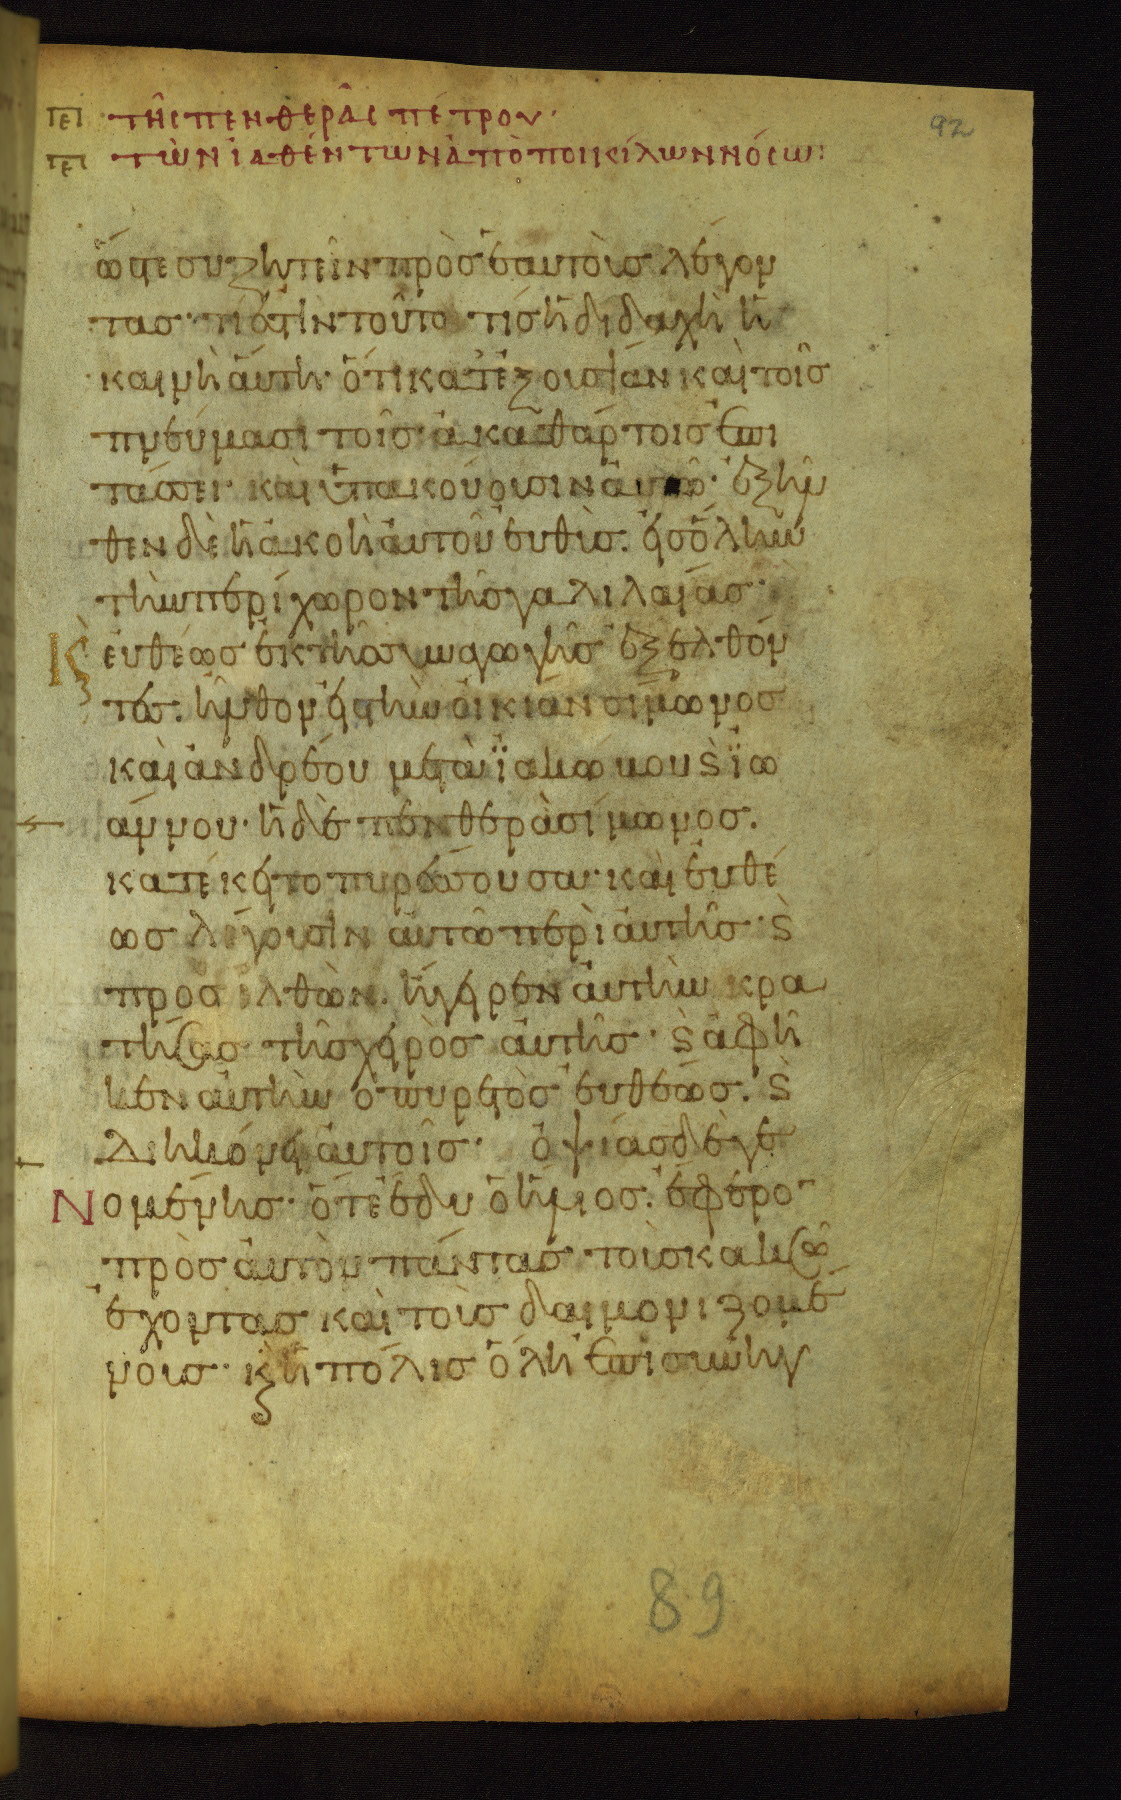 πε τῆς πενθερᾶς πέτρου· 92
πε τῶν ἰαθέντων ἀπὸ ποικίλων νόσω:
ὥστε συζητεῖν πρὸς ἑαυτοὺς λέγον
τας· τί ἐστιν τοῦτο τίς ἡ διδαχὴ ἡ
καινὴ αὕτη· ὅτι κατ ἐξουσίαν καὶ τοῖς
πνεύμασι τοῖς ἀκαθάρτοις ἐπι
τάσσει· καὶ ὑπακούουσιν αὐτῶ· ἐξῆλ
θεν δὲ ἡ ἀκοὴ αὐτοῦ εὐθὺς. εἰς ὅλην
τὴν περίχωρον τῆς γαλιλαίας·
Κ εὐθέως ἐκ τῆς συναγωγῆς ἐξελθόν
τες. ἦλθον εἰς τὴν οἰκίαν σίμωνος
καὶ ἀνδρέου μετὰ ϊακώβου ϗ ϊω
άννου· ἡ δὲ πενθερὰ σίμωνος.
κατέκειτο πυρέσσουσα· καὶ εὐθέ
ως λέγουσιν αὐτῶ περὶ αὐτῆς· ϗ
προσελθὼν. ἤγειρεν αὐτὴν κρα
τήσας τῆς χειρὸς αὐτῆς· ϗ ἀφῆ
κεν αὐτὴν ὁ πυρετὸς εὐθέως. ϗ
διηκόνει αὐτοῖς· ὀψίας δὲ γε
Νομένης· ὅτε ἔδυ ὁ ἥλιος. ἔφερον
πρὸς αὐτὸν πάντας τοὺς κακῶς
ἔχοντας καὶ τοὺς δαιμονιζομέ
νους· ϗ ἡ πόλις ὅλη ἐπισυνηγ
89